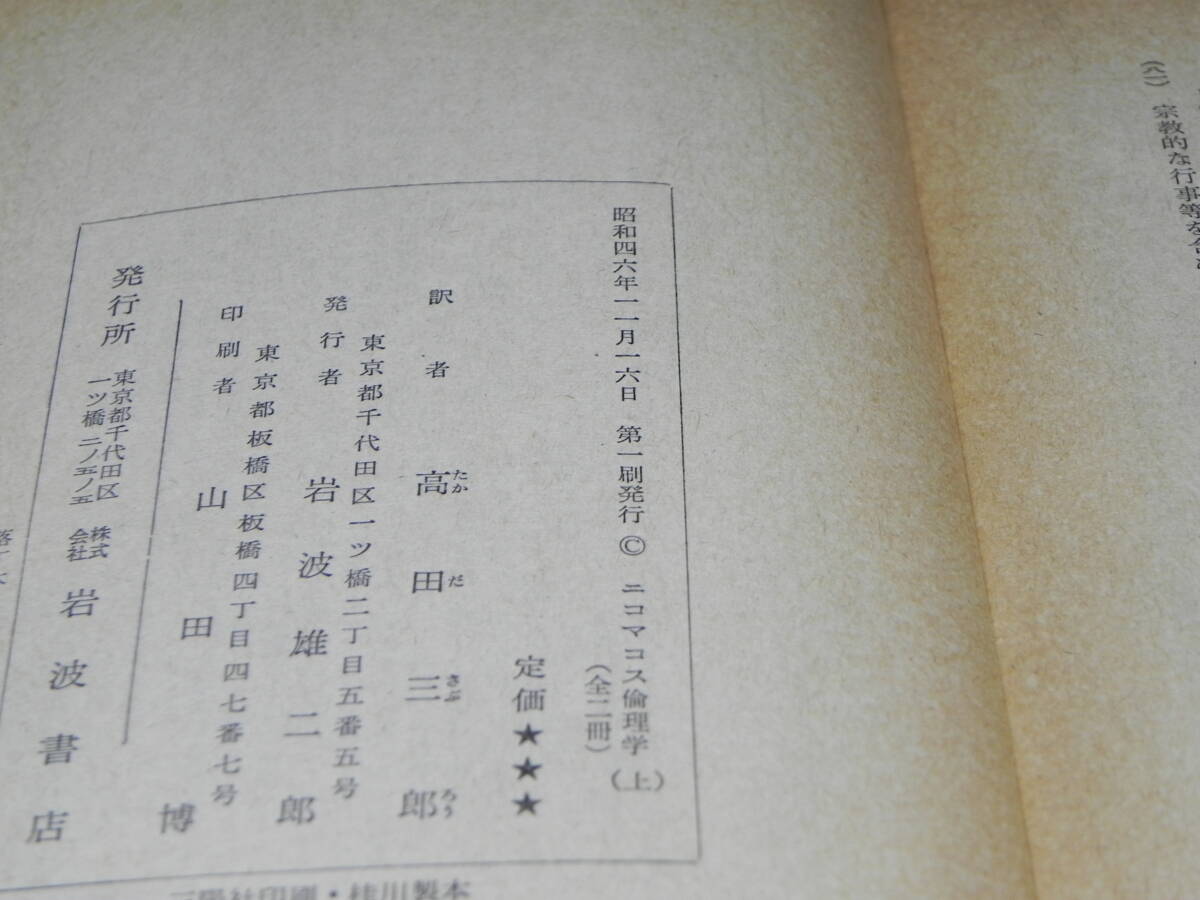 (八一) 宗教的な行事等を
昭和四六年一一月一六日 第一刷発行 © ニコマコス倫理学(上)
(全二冊)
定価★★★
訳者 高田三郎
たかださぶろう
東京都千代田区一ツ橋二丁目五番五号
発行者 岩波雄二郎
東京都板橋区板橋四丁目四七番七号
印刷者 山田博
発行所 東京都千代田区
一ツ橋二ノ五ノ五
株式
会社
岩波書店
三陽社印刷・桂川製本